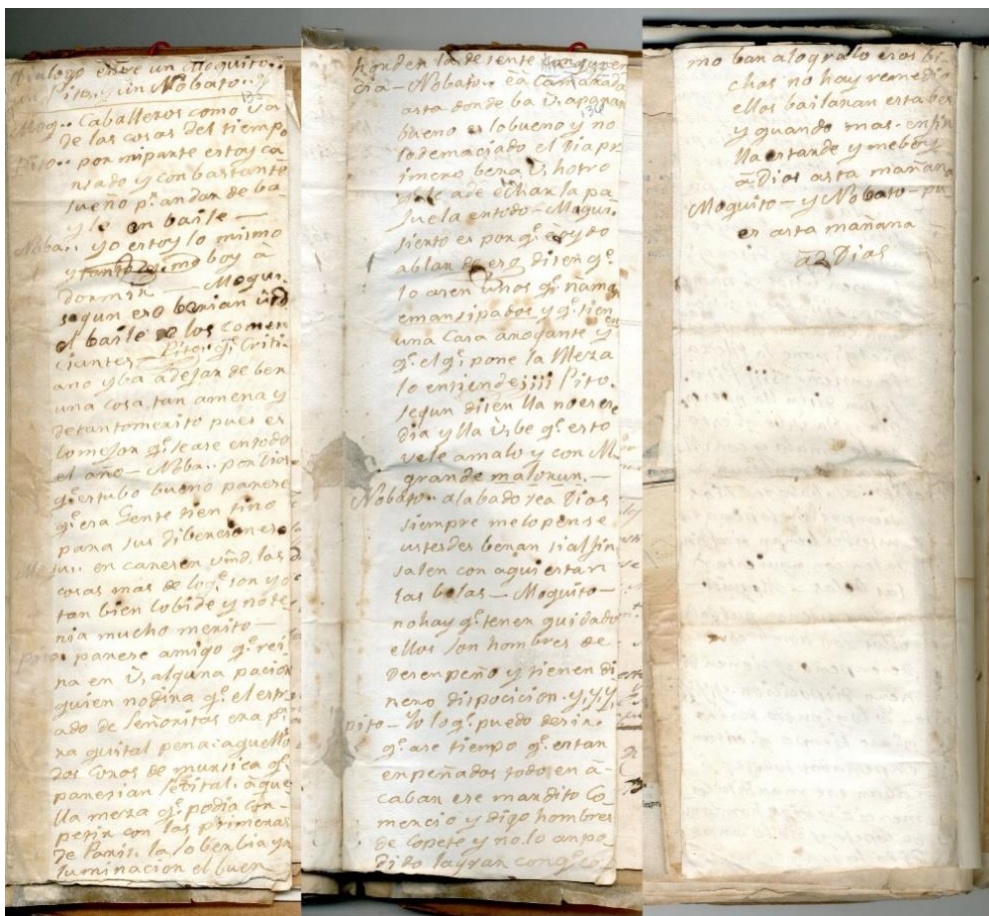 Dialogo entre un Moquito..
un Pito.. y un Nobato..
Moq.. Caballeros como va
de las cosas del tiempo
Pito.. por miparte estoy ca
nsado y con bastante
sueño p.r andar de ba
yle en baile —
Noba.. yo estoy lo mismo
y me boy à
dormir — Moqui.
segun eso berian
el baile de los comer
ciantes — Pito. q.e Cristi
ano yba adejar de ber
una cosa tan amena y
detantomerito pues es
lomejor q.e seare entodo
el año — Noba.. por Dios
q.e estubo bueno parese
q.e esa Gente tien tino
para sus dibersiones
en caresen vmd. las
cosas mas de loq.e son yo
tan bien lobide y note
nia mucho merito —
Pito. parese amigo q.e rei
na en V. alguna pacion
quien nodira q.e el estr
ado de señoritas era pi
ra guital pena: aquello
dos Coros de mursica q.e
paresian sevital. àque
lla mesa q.e podia con -
petir con las primeras
de Paris. la soberbia yn
luminacion el buen
horden la desente
cia — Nobato.. ea Camarada
asta donde ba V. aparar
136
bueno es lobueno y no
lodemaciado el Dia pr
imero bera V. hotro
q.e le ade echar la pa
juela entodo — Moqui.
sierto es porq.e
ablar de eso disen q.e
lo asen unos q.e nama
emansipados y q.e tien en
una Casa arogante y
q.e el q.e pone la Mesa
lo entiende¡¡¡¡ Pito.
segun disen lla noes ese
dia y lla V. be q.e esto
vele amalo y con M
grande malorun. —
Nobato.. alabado sea Dios
siempre melopense
ustesdes beran sialfin
salen con aqui estan
las bolas — Moquito —
nohay q.e tener quidado
ellos son hombres de
Desenpeño y tienen di
nero dispocicion. y, y, y,
pito — Yo loq.e puedo desir.
q.e ase tiempo q.e estan
enpeñados todos en à-
cabar ese mardito Co
mercio y digo hombres
de Copete y no lo an po
dido lograr conq.e co
mo ban alograrlo esos bi
chos no hay remedio
ellos bailaran esta bes
y quando mas - en fin
lla estarde y meboy
à Dios asta mañana
Moquito — y Nobato — pu
es asta mañana
à Dios